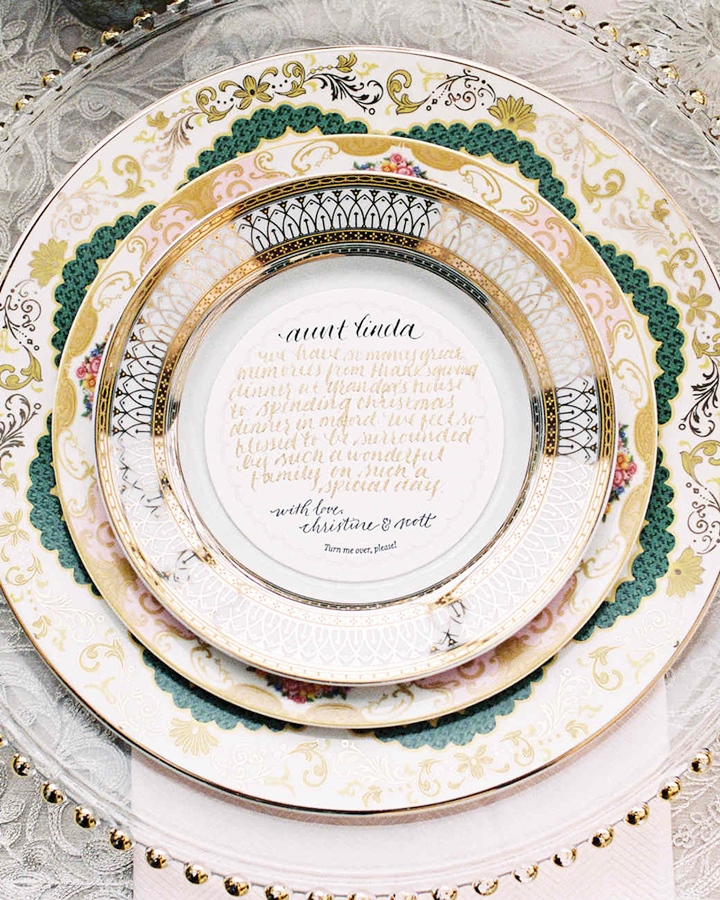 aunt linda
we have so many great
memories from thanksgiving
dinner at grandpa's house
to spending christmas
dinner in We feel so
blessed to be surrounded
by such a wonderful
family on such a
special day.
with love,
christine & scott
Turn me over, please!